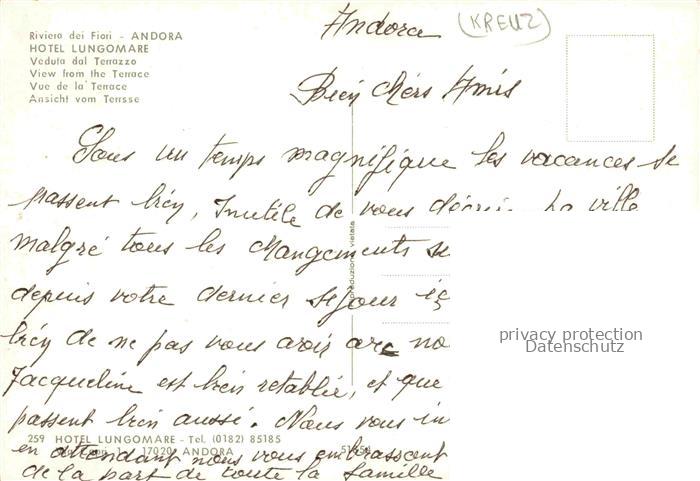 Andora
(KREUZ)
Riviera dei Fiori - ANDORA
HOTEL LUNGOMARE
Veduta dal Terrazzo
View from the Terrace
Vue de la Terrace
Ansicht vom Terrsse
Bien Chers Amis
Sous un temps magnifique les vacances se
passent bien, Inutile de vous décrire la ville
malgré tous les changements
depuis votre dernier séjour
de ne pas vous avoir avec no
Jacqueline est bien rétablie, et que
passent bien aussi. Nous vous
en attendant nous vous embrassent
de la part de toute la famille
riproduzione vietata
privacy protection
Datenschutz
259 HOTEL LUNGOMARE - Tel. (0182) 85185
17020 ANDORA